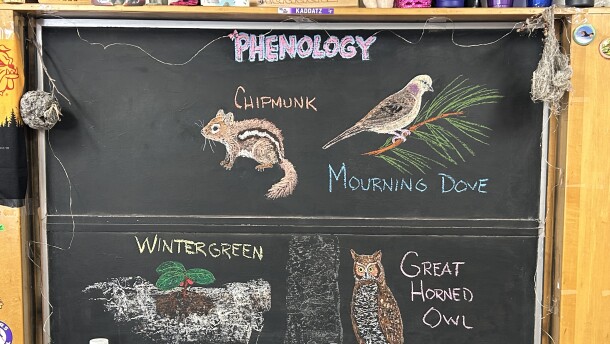 KADDATZ
PHENOLOGY
CHIPMUNK
MOURNING DOVE
WINTERGREEN
GREAT
HORNED
OWL